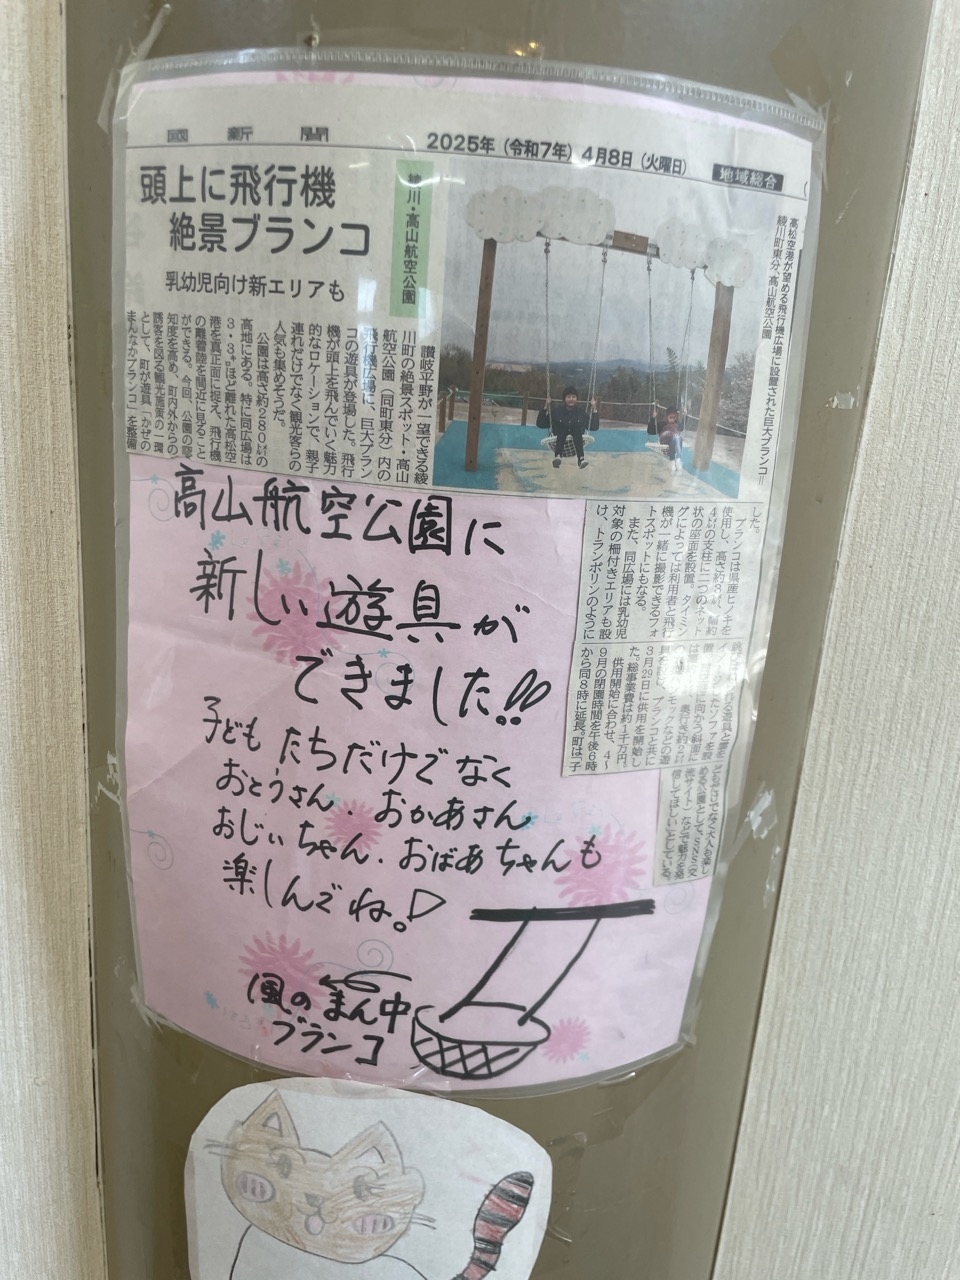 國新聞
2025年(令和7年)4月8日(火曜日)
地域総合
頭上に飛行機
絶景ブランコ
乳幼児向け新エリアも
綾川・高山航空公園
高松空港が望める飛行機広場に設置された巨大ブランコ=
綾川町東分、高山航空公園
讃岐平野が一望できる綾
川町の絶景スポット・高山
航空公園(同町東分)内の
飛行機広場に、巨大ブラン
コの遊具が登場した。飛行
機が頭上を飛んでいく魅力
的なロケーションで、親子
連れだけでなく観光客らの
人気も集めそうだ。
公園は高さ約280㍍の
高地にある。特に同広場は
3・3㌔ほど離れた高松空
港を真正面に捉え、飛行機
の離着陸を間近に見ること
ができる。今回、公園の認
知度を高め、町内外からの
誘客を図る観光施策の一環
として、町が遊具「かぜの
まんなかブランコ」を整備
した。
ブランコは県産ヒノキを
使用し、高さ約3㍍、幅約
4㍍の支柱に二つのネット
状の座面を設置。タイミン
グによっては利用者と飛行
機が一緒に撮影できるフォ
トスポットにもなる。
また、同広場には乳幼児
対象の柵付きエリアも設
け、トランポリンのように
3月29日に供用を開始し
た。総事業費は約1千万円。
供用開始に合わせ、4~
9月の閉園時間を午後6時
から同8時に延長。町は「子
どもだけでなく大人も楽し
める公園として、SNS(交
流サイト)などで魅力を発
信してほしい」としている。
高山航空公園に
新しい遊具が
できました!!
子どもたちだけでなく
おとうさん.おかあさん
おじいちゃん.おばあちゃんも
楽しんでね。♡
風のまん中
ブランコ